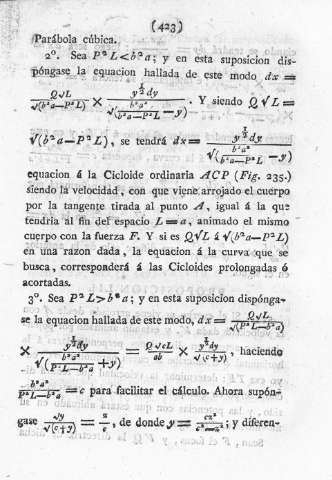 (423)
Parábola cúbica.
2º. Sea P²L<b²a; y en esta suposicion dis-
póngase la equacion hallada de este modo dx =
Q√L / √(b²a—P²L) × y^½ dy / √(b²a² / b²a—P²L —y). Y siendo Q√L =
√(b²a—P²L), se tendrá dx = y^½ dy / √(b²a² / b²a—P²L —y)
equacion á la Cicloide ordinaria ACP (Fig. 235.)
siendo la velocidad, con que viene arrojado el cuerpo
por la tangente tirada al punto A, igual á la que
tendria al fin del espacio L=a, animado el mismo
cuerpo con la fuerza F. Y si es Q√L á √(b²a—P²L)
en una razon dada, la equacion á la curva que se
busca, corresponderá á las Cicloides prolongadas ó
acortadas.
3º. Sea P²L>b²a; y en esta suposicion dispónga-
se la equacion hallada de este modo, dx = Q√L / √(P²L—b²a)
× y^½ dy / √(b²a² / P²L—b²a +y) = Q√cL / ab × y^½ dy / √(c+y), haciendo
b²a² / P²L—b²a = c para facilitar el cálculo. Ahora supón-
gase √y / √(c+y) = z / c, de donde y = cz² / c²—z²; y diferen-